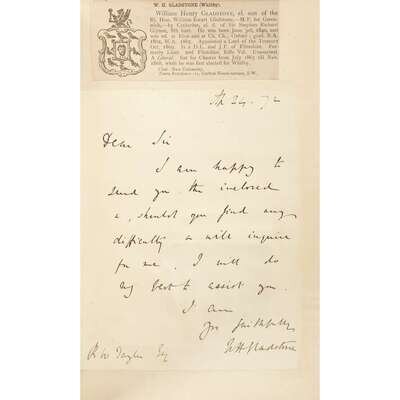 W. H. GLADSTONE (Whitby).
William Henry GLADSTONE, el. son of the
Rt. Hon. William Ewart Gladstone, M.P. for Greenwich,
by Catherine, el. d. of Sir Stephen Richard
Glynne, 8th bart. He was born June 3rd, 1840, and
was ed. at Eton and at Ch. Ch., Oxford; grad. B.A.
1862, M.A. 1865. Appointed a Lord of the Treasury
Oct. 1869. Is a D.L. and J.P. of Flintshire.
A Liberal. Sat for Chester from July 1865 till Nov.
1868, when he was first elected for Whitby.
24. 72
Dear Sir
I am happy to
send you the inclosed
&, should you find any
difficulty & will inquire
for me, I will do
my best to assist you.
I am
Yrs faithfully
WHGladstone
R W Taylor Esq